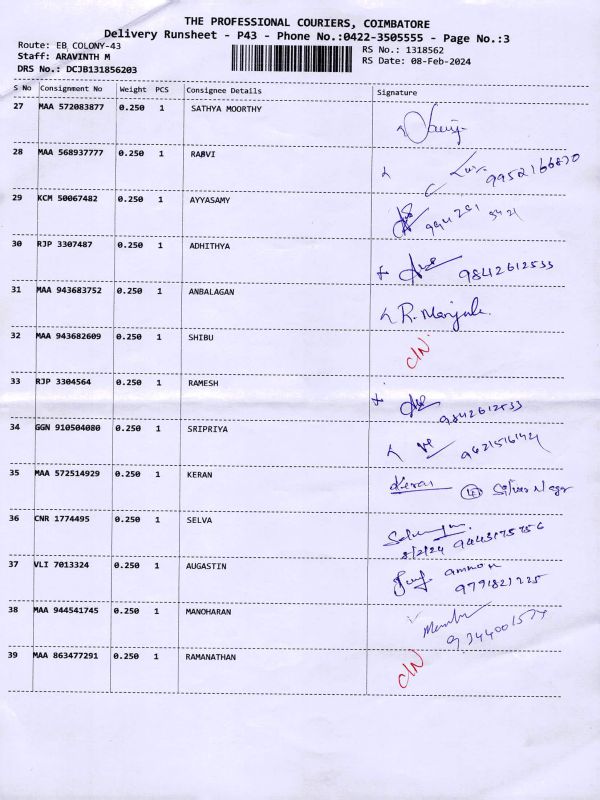 THE PROFESSIONAL COURIERS, COIMBATORE
Delivery Runsheet - P43 - Phone No.:0422-3505555 - Page No.:3
Route: EB COLONY-43
RS No.: 1318562
Staff: ARAVINTH M
RS Date: 08-Feb-2024
DRS No.: DCJB131856203
S No Consignment No Weight PCS Consignee Details Signature
27 MAA 572083877 0.250 1 SATHYA MOORTHY
28 MAA 568937777 0.250 1 RABVI 9952166870
29 KCM 50067482 0.250 1 AYYASAMY
30 RJP 3307487 0.250 1 ADHITHYA 9842612533
31 MAA 943683752 0.250 1 ANBALAGAN R. Manjula.
32 MAA 943682609 0.250 1 SHIBU C/N
33 RJP 3304564 0.250 1 RAMESH 9842612533
34 GGN 910504080 0.250 1 SRIPRIYA
35 MAA 572514929 0.250 1 KERAN Keran
36 CNR 1774495 0.250 1 SELVA
8/2/24
37 VLI 7013324 0.250 1 AUGASTIN
38 MAA 944541745 0.250 1 MANOHARAN
39 MAA 863477291 0.250 1 RAMANATHAN C/N